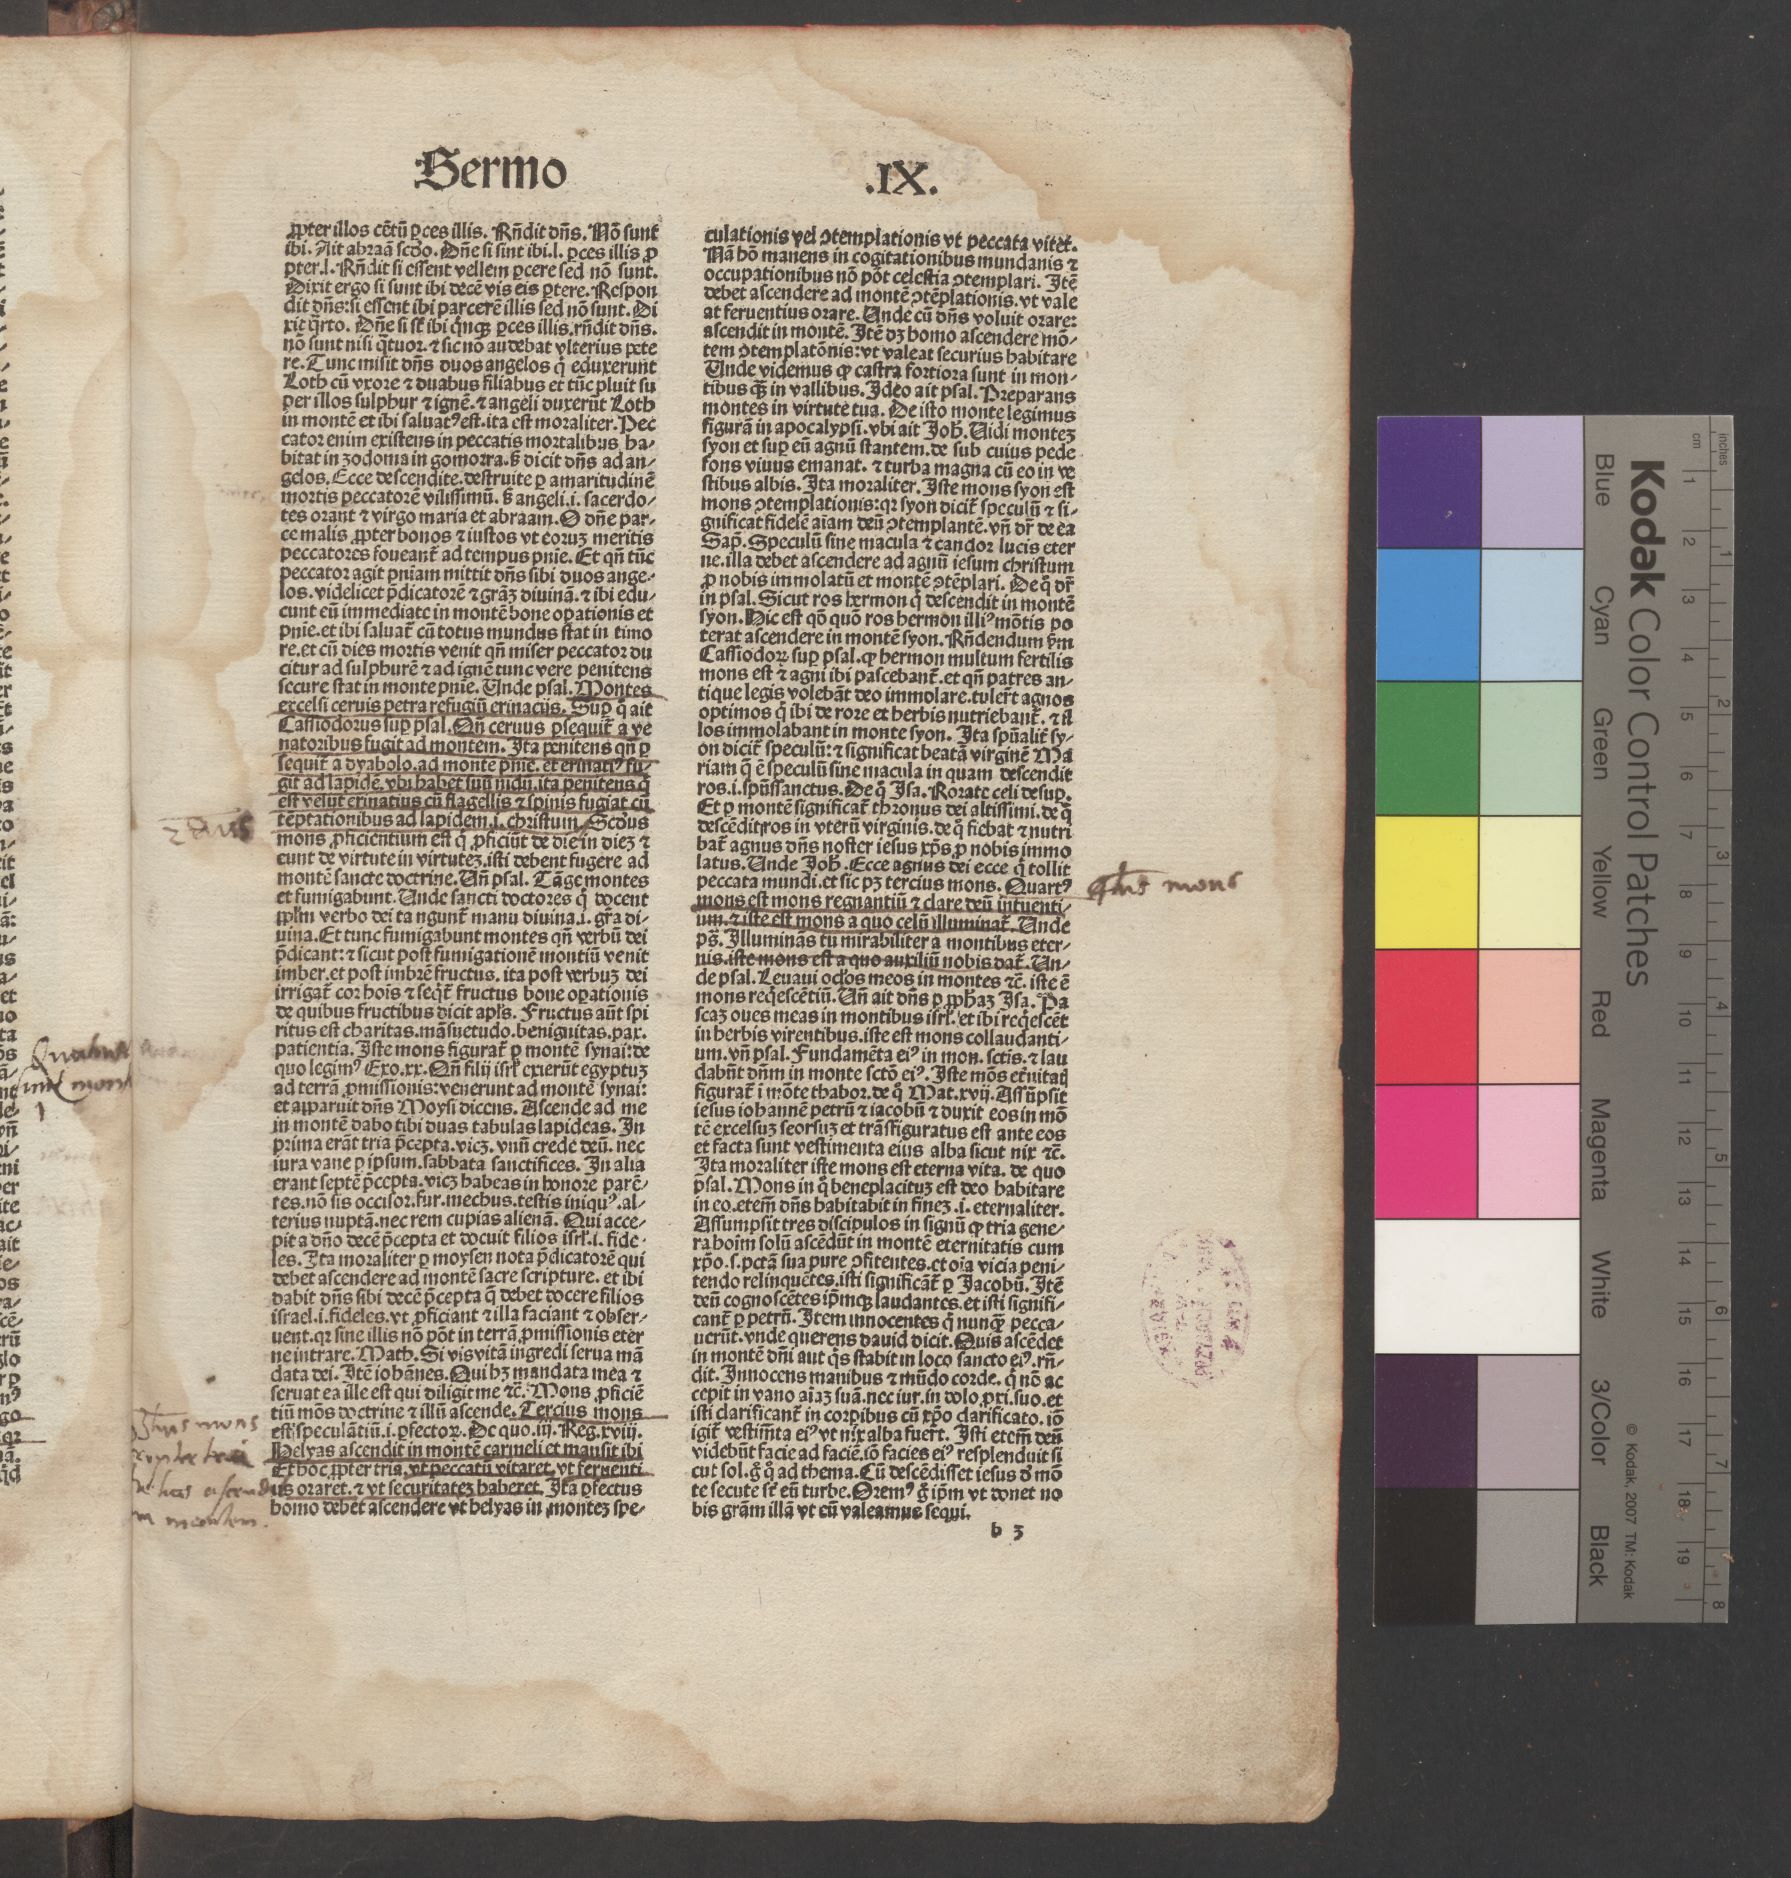 Sermo
.IX.
ꝓpter illos cētū ꝑces illis. Rñdit dñs. Nō sunt
ibi. Ait abraā scđo. Dñe si sint ibi.l. ꝑces illis ꝓ
pter.l. Rñdit si essent vellem ꝑcere sed nō sunt.
Dixit ergo si sunt ibi decē vis eis ꝑtere. Respon
dit dñs:si essent ibi parcerē illis sed nō sunt. Di
xit q̄rto. Dñe si st̄ ibi q̄nqꝫ ꝑces illis.rñdit dñs.
nō sunt nisi q̄tuor. ⁊ sic nō audebat vlterius pete
re. Tunc misit dñs duos angelos q̄ eduxerunt
Loth cū vxore ⁊ duabus filiabus et tūc pluit su
per illos sulphur ⁊ ignē. ⁊ angeli duxerūt Loth
in montē et ibi saluatꝰ est.ita est moraliter. Pec
cator enim existens in peccatis mortalibus ha⸗
bitat in zodoma in gomorra.ß dicit dñs ad an⸗
gelos. Ecce descendite.destruite ꝑ amaritudinē
mortis peccatorē vilissimū. ß angeli.i. sacerdo⸗
tes orant ⁊ virgo maria et abraam. O dñe par⸗
ce malis ꝓpter bonos ⁊ iustos vt eoruꝫ meritis
peccatores foueant̄ ad tempus pnie. Et qñ tūc
peccator agit pniam mittit dñs sibi duos ange⸗
los. videlicet p̄dicatorē ⁊ grāꝫ diuinā. ⁊ ibi edu⸗
cunt eū immediate in montē bone oꝑationis et
pnie.et ibi saluat̄ cū totus mundus stat in timo
re.et cū dies mortis venit qñ miser peccator du
citur ad sulphurē ⁊ ad ignē tunc vere penitens
secure stat in monte pnie. Unde psal. Montes
excelsi ceruis petra refugiū erinacijs. Suꝑ q̄ ait
Cassiodorus suꝑ psal. Qñ ceruus ꝑsequit̄ a ve
natoribus fugit ad montem. Ita penitens qñ ꝑ
sequit̄ a dyabolo.ad montē pnie. et erinatiꝰ fu⸗
git ad lapidē.vbi habet suū nidū.ita penitens q̄
est velut erinatius cū flagellis ⁊ spinis fugiat cū
tēptationibus ad lapidem.i. christum. Scđus
mons ꝓficientium est q̄ ꝓficiūt de die in dieꝫ ⁊
eunt de virtute in virtuteꝫ.isti debent fugere ad
montē sancte doctrine. Uñ psal. Tāge montes
et fumigabunt. Unde sancti doctores q̄ docent
pplm verbo dei tangunt̄ manu diuina.i. gr̄a di⸗
uina. Et tunc fumigabunt montes qñ verbū dei
p̄dicant: ⁊ sicut post fumigationē montiū venit
imber.et post imbrē fructus. ita post verbuꝫ dei
irrigat̄ cor hois ⁊ seq̄t̄ fructus bone oꝑationis
de quibus fructibus dicit apl̄s. Fructus aūt spi
ritus est charitas.māsuetudo.benignitas.pax.
patientia. Iste mons figurat̄ ꝑ montē synai:de
quo legimꝰ Exo.xx. Qñ filij isrl̄ exierūt egyptuꝫ
ad terrā ꝓmissionis:venerunt ad montē synai:
et apparuit dñs Moysi dicens. Ascende ad me
in montē dabo tibi duas tabulas lapideas. In
prima erāt tria p̄cepta.vicꝫ. vnū crede deū. nec
iura vane ꝑ ipsum.sabbata sanctifices. In alia
erant septē p̄cepta.vicꝫ habeas in honore parē⸗
tes.nō sis occisor.fur.mechus.testis iniquꝰ.al⸗
terius nuptā.nec rem cupias alienā. Qui acce⸗
pit a dño decē p̄cepta et docuit filios isrl̄.i. fide⸗
les. Ita moraliter ꝑ moysen nota p̄dicatorē qui
debet ascendere ad montē sacre scripture. et ibi
dabit dñs sibi decē p̄cepta q̄ debet docere filios
israel.i.fideles.vt ꝓficiant ⁊ illa faciant ⁊ obser⸗
uent.qꝛ sine illis nō pōt in terrā ꝓmissionis eter
ne intrare. Math. Si vis vitā ingredi serua mā
data dei. Itē iohānes. Qui hꝫ mandata mea ⁊
seruat ea ille est qui diligit me ⁊c̄. Mons ꝓficiē
tiū mōs doctrine ⁊ illū ascende. Tercius mons
est speculātiū.i. ꝑfectoꝝ. De quo.iij. Reg.xviij.
Helyas ascendit in montē carmeli et mansit ibi
Et hoc ꝓpter tria.vt peccatū vitaret.vt feruenti
us oraret. ⁊ vt securitateꝫ haberet. Ita ꝑfectus
homo debet ascendere vt helyas in monteꝫ spe⸗
culationis vel ↄtemplationis vt peccata vitet.
Nā hō manens in cogitationibus mundanis ⁊
occupationibus nō pōt celestia ↄtemplari. Itē
debet ascendere ad montē ↄtēplationis.vt vale
at feruentius orare. Unde cū dñs voluit orare:
ascendit in montē. Itē dꝫ homo ascendere mō⸗
tem ↄtemplatōnis:vt valeat securius habitare
Unde videmus ꝙ castra fortiora sunt in mon⸗
tibus qꝫ̄ in vallibus. Ideo ait psal. Preparans
montes in virtute tua. De isto monte legimus
figurā in apocalypsi.vbi ait Joh̄. Uidi monteꝫ
syon et suꝑ eū agnū stantem.de sub cuius pede
fons viuus emanat. ⁊ turba magna cū eo in ve
stibus albis. Ita moraliter. Iste mons syon est
mons ↄtemplationis:qꝛ syon dicit̄ speculū ⁊ si⸗
gnificat fidelē aīam deū ↄtemplantē.vñ dr̄ de ea
Sap̄. Speculū sine macula ⁊ candor lucis eter
ne.illa debet ascendere ad agnū iesum christum
ꝓ nobis immolatū et montē ↄtēplari. De q̄ dr̄
in psal. Sicut ros hermon q̄ descendit in montē
syon. Hic est qō quō ros hermon illiꝰ mōtis po
terat ascendere in montē syon. Rñdendum ẜm
Cassiodoꝝ suꝑ psal.ꝙ hermon multum fertilis
mons est ⁊ agni ibi pascebant̄.et qñ patres an⸗
tique legis volebāt deo immolare.tulert̄ agnos
optimos q̄ ibi de rore et herbis nutriebant̄. ⁊ il
los immolabant in monte syon. Ita spūalit̄ sy⸗
on dicit̄ speculū: ⁊ significat beatā virginē Ma
riam q̄ ē speculū sine macula in quam descendit
ros.i.spūssanctus. De q̄ Isa. Rorate celi desuꝑ.
Et ꝑ montē significat̄ thronus dei altissimi.de q̄
descēdit ros in vterū virginis.de q̄ fiebat ⁊ nutri
bat̄ agnus dñs noster iesus xp̄s ꝓ nobis immo
latus. Unde Joh̄. Ecce agnus dei ecce q̄ tollit
peccata mundi.et sic pꝫ tercius mons. Quartꝰ
mons est mons regnantiū ⁊ clare deū intuenti⸗
um. ⁊ iste est mons a quo celū illuminat̄. Unde
pš. Illuminās tu mirabiliter a montibus eter⸗
nis.iste mons est a quo auxiliū nobis dat̄. Un⸗
de psal. Leuaui oc̄los meos in montes ⁊c̄. iste ē
mons req̄escētiū. Uñ ait dñs ꝑ ꝓph̄aꝫ Isa. Pa
scaꝫ oues meas in montibus isrl̄.et ibi req̄escēt
in herbis virentibus.iste est mons collaudanti⸗
um.vñ psal. Fundamēta eiꝰ in mon. sctis. ⁊ lau
dabūt dñm in monte sctō eiꝰ. Iste mōs et̄nitatꝭ
figurat̄ ī mōte thabor.de q̄ Mat.xvij. Assūpsit
iesus iohannē petrū ⁊ iacobū ⁊ duxit eos in mō
tē excelsuꝫ seorsuꝫ et trāsfiguratus est ante eos
et facta sunt vestimenta eius alba sicut nix ⁊c̄.
Ita moraliter iste mons est eterna vita. de quo
psal. Mons in q̄ beneplacituꝫ est deo habitare
in eo.etem̄ dñs habitabit in fineꝫ.i. eternaliter.
Assumpsit tres discipulos in signū ꝙ tria gene⸗
ra hoim solū ascēdūt in montē eternitatis cum
xp̄o.s.pctā sua pure ↄfitentes.et oīa vicia peni⸗
tendo relinquētes.isti significāt̄ ꝑ Jacobū. Itē
deū cognoscētes ip̄mqꝫ laudantes.et isti signifi⸗
cant̄ ꝑ petrū. Item innocentes q̄ nunqꝫ̄ pecca⸗
uerūt.vnde querens dauid dicit. Quis ascēdet
in montē dñi aut q̄s stabit in loco sancto eiꝰ.rñ⸗
dit. Innocens manibus ⁊ mūdo corde. q̄ nō ac
cepit in vano aīaꝫ suā.nec iur.in dolo ꝓxi.suo.et
isti clarificant̄ in corꝑibus cū xp̄o clarificato.iō
igit̄ vestim̄ta eiꝰ vt nix alba fuert̄. Isti etem̄ deū
videbūt facie ad faciē.iō facies eiꝰ resplenduit si
cut sol.ḡ q̄ ad thema. Cū descēdisset iesus đ mō
te secute st̄ eū turbe. Oremꝰ ḡ ip̄m vt donet no
bis grām illā vt eū valeamus sequi.
b 3
2dus
4tus mons
3tius mons
propter tria
in montem.
Kodak Color Control Patches
Blue
Cyan
Green
Yellow
Red
Magenta
White
3/Color
Black
© Kodak, 2007 TM: Kodak
inches
cm
1 2 3 4 5 6 7 8 9 10 11 12 13 14 15 16 17 18 19
1 2 3 4 5 6 7 8